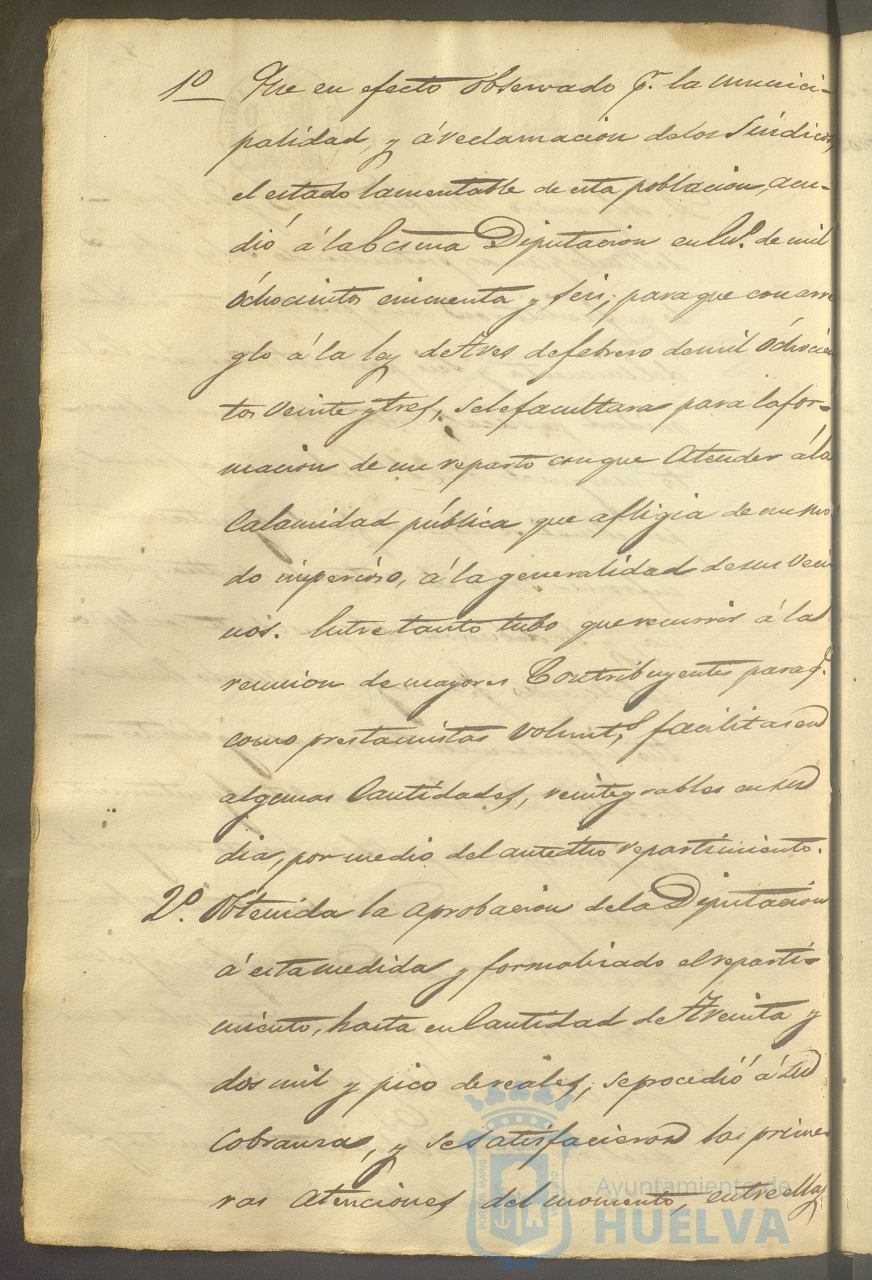 1º Que en efecto observado q.e la munici-
palidad, y á reclamacion delos Sindicos,
el estado lamentable de esta poblacion, acu-
dió á la Ecsma Diputacion en de mil
óchocientos cincuenta y seis, para que con arre
glo á la ley de tres de febrero de mil óchocien
tos veinte y tres, sele facultara para la for-
macion de un reparto con que atender á la
Calamidad pública que afligia de un mo
do imperioso, á la generalidad de sus veci
nos. Entre tanto tubo que recurrir á la
reunion de mayores Contribuyentes para q.e
como prestamistas volunt.s facilitasen
algunas Cantidades, reintegrables en su
dia, por medio del antedho repartimiento.
2º. Obtenida la aprobacion dela Diputacion
á esta medida y formalizado el reparti-
miento, hasta en Cantidad de treinta y
dos mil y pico de reales, se procedió á su
Cobranza, y se satisfacieron las prime
ras atenciones del momento, entre ellas
Ayuntamiento de
HUELVA